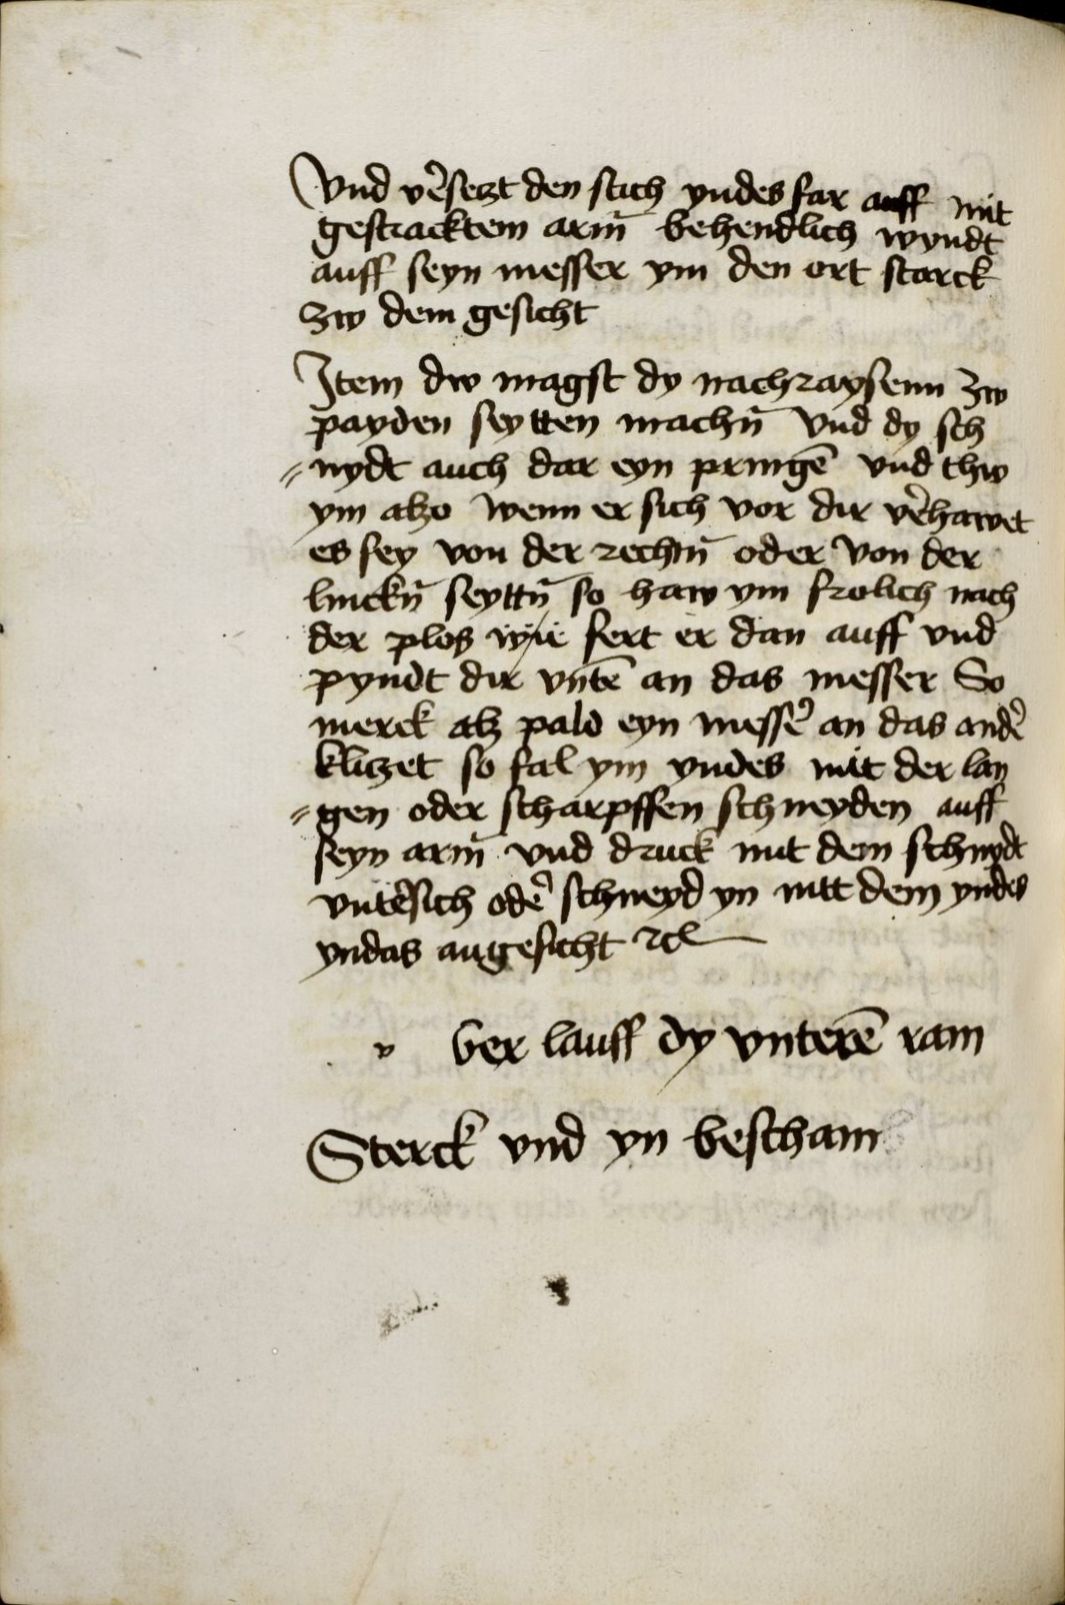 Vnd v̾setzt den stich yndes far auff mit
gestracktem arm̄ behendlich wyndt
auff seyn messer ym den ort starck
zw dem gesicht
Item dw magst dy nachraysenn zw
payden seytten machn̄ vnd dy sch
⸗nydt auch dar eyn pringē vnd thw
ym alzo wenn er sich vor dir v̾hawet
es sey von der rechtn̄ oder von der
linckn̄ seyttn̄ so haw ym frolich nach
der plos wye fert er dan auff vnd
pyndt dir vntē an das messer So
merck alz pald eyn mess̾ an das and̾
klitzet so fal ym yndes mit der lan
⸗gen oder scharpffen schneyden auff
seyn arm̄ vnd druck mit dem schnydt
vnt̾sich od̾ schneyd yn mitt dem yndes
yndas angesicht ⁊cl
v ber lauff dy vnterē ram
Sterck vnd yn bescham